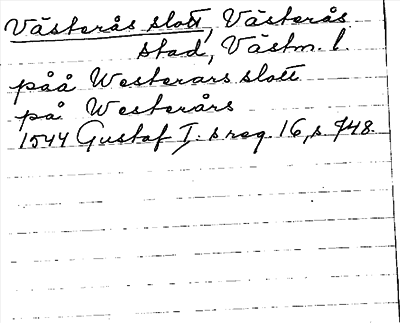 Västerås slott, Västerås
stad, Västm. l.
påå Westerars slott
på Westerårs
1544 Gustaf I:s reg. 16, s. 748.